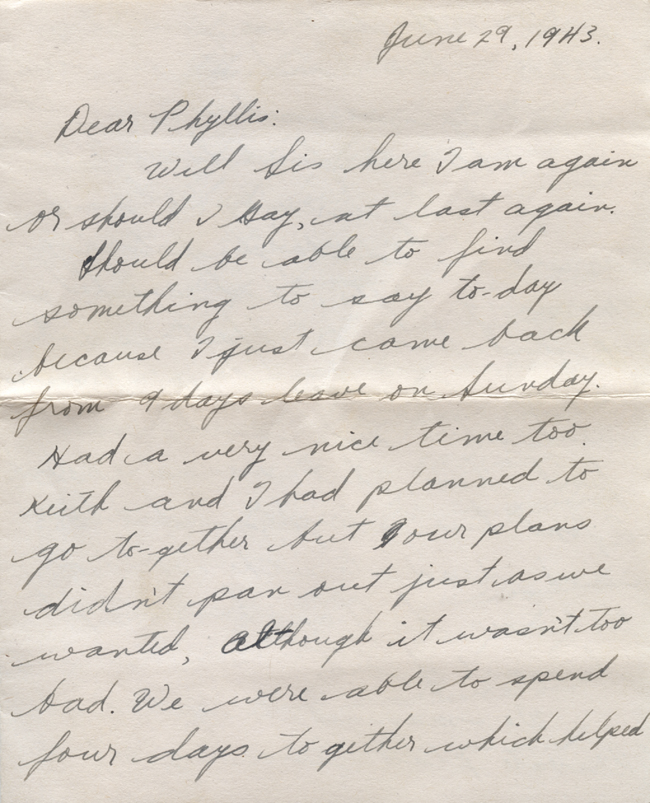 June 29, 1943.
Dear Phyllis:
Well Sis here I am again
or should I say, at last again.
Should be able to find
something to say to-day
because I just came back
from 9 days leave on Sunday.
Had a very nice time too.
Keith and I had planned to
go to-gether but our plans
didn't pan out just as we
wanted, although it wasn't too
bad. We were able to spend
four days to gether which helped